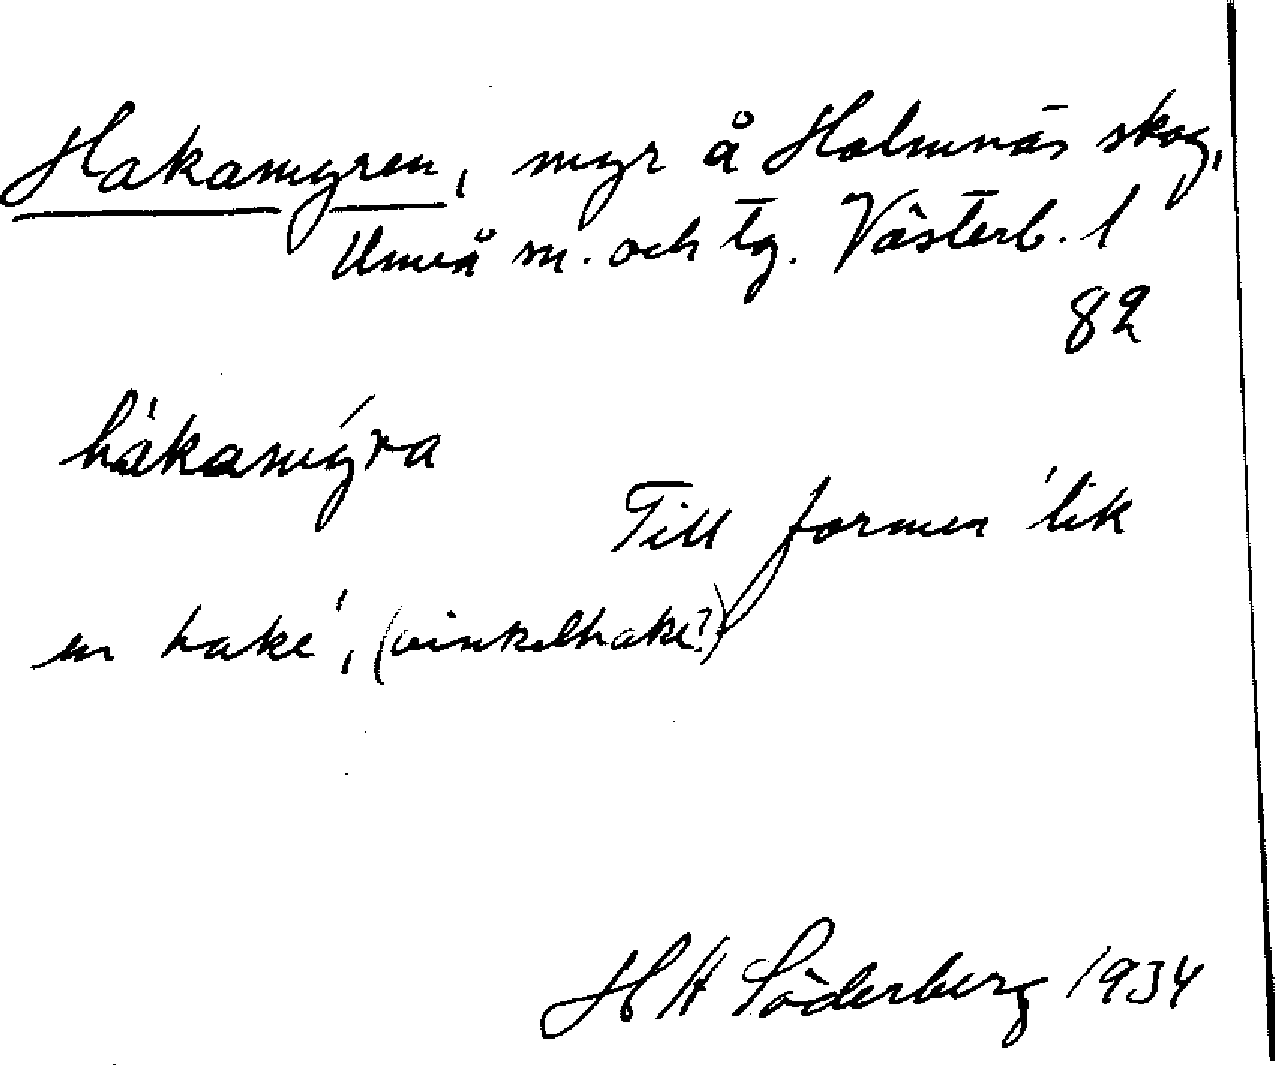 Hakamyren, myr å Holmnäs skog,
Umeå sn. och tg. Västerb. l
82
håkamy̍ra
Till formen 'lik
en hake', (vinkelhake?)
H H Söderberg 1934